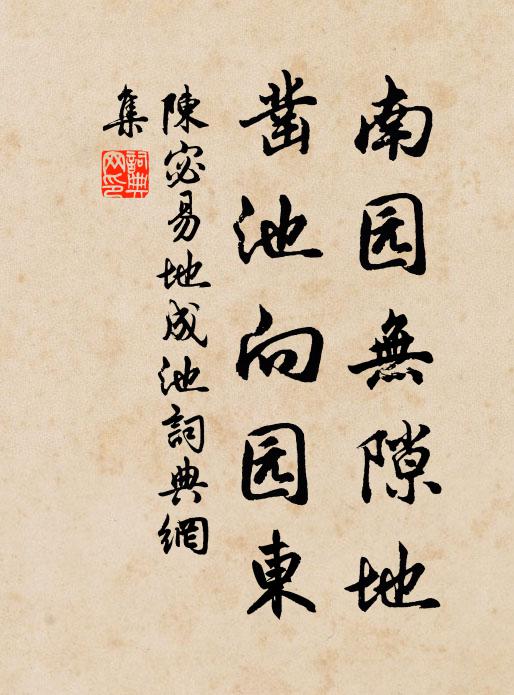 南园無隙地
凿池向园東
陳宓易地成池詞典網
集
詞典
网印